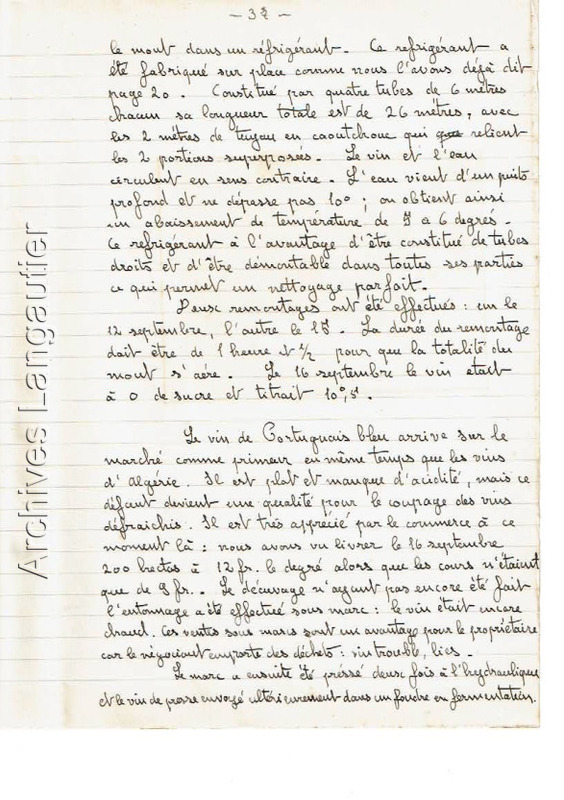 le mout dans un réfrigérant. Ce refrigérant a
été fabriqué sur place comme nous l'avons déjà dit
page 20. Constitué par quatre tubes de 6 mètres
chacun sa longueur totale est de 26 mètres, avec
les 2 mètres de tuyau en caoutchouc qui relient
les 2 portions superposées. Le vin et l'eau
circulent en sens contraire. L'eau vient d'un puits
profond et ne dépasse pas 10°; on obtient ainsi
un abaissement de température de 5 a 6 degrés.
Ce refrigérant à l'avantage d'être constitué de tubes
droits et d'être démontable dans toutes ses parties
ce qui permet un nettoyage parfait.
Deux remontages ont été effectués : un le
12 septembre, l'autre le 15. La durée du remontage
doit être de 1 heure et 1/2 pour que la totalité du
mout s'aére. Le 16 septembre le vin était
à 0 de sucre et titrait 10°,5.
Le vin de Portugais bleu arrive sur le
marché comme primeur en même temps que les vins
d'Algérie. Il est plat et manque d'acidité, mais ce
défaut devient une qualité pour le coupage des vins
défraichis. Il est très apprécié par le commerce à ce
moment là : nous avons vu livrer le 16 septembre
200 hectos à 12 fr. le degré alors que les cours n'étaient
que de 9 fr.. Le décuvage n'ayant pas encore été fait
l'entonnage a été effectué sous marc : le vin était encore
chaud. Ces ventes sous marcs sont un avantage pour le propriétaire
car le négociant emporte des déchets : vin trouble, lies.
Le marc a ensuite été pressé deux fois à l'hydraulique
et le vin de presse envoyé ultérieurement dans un foudre en fermentation.
Archives Langautier